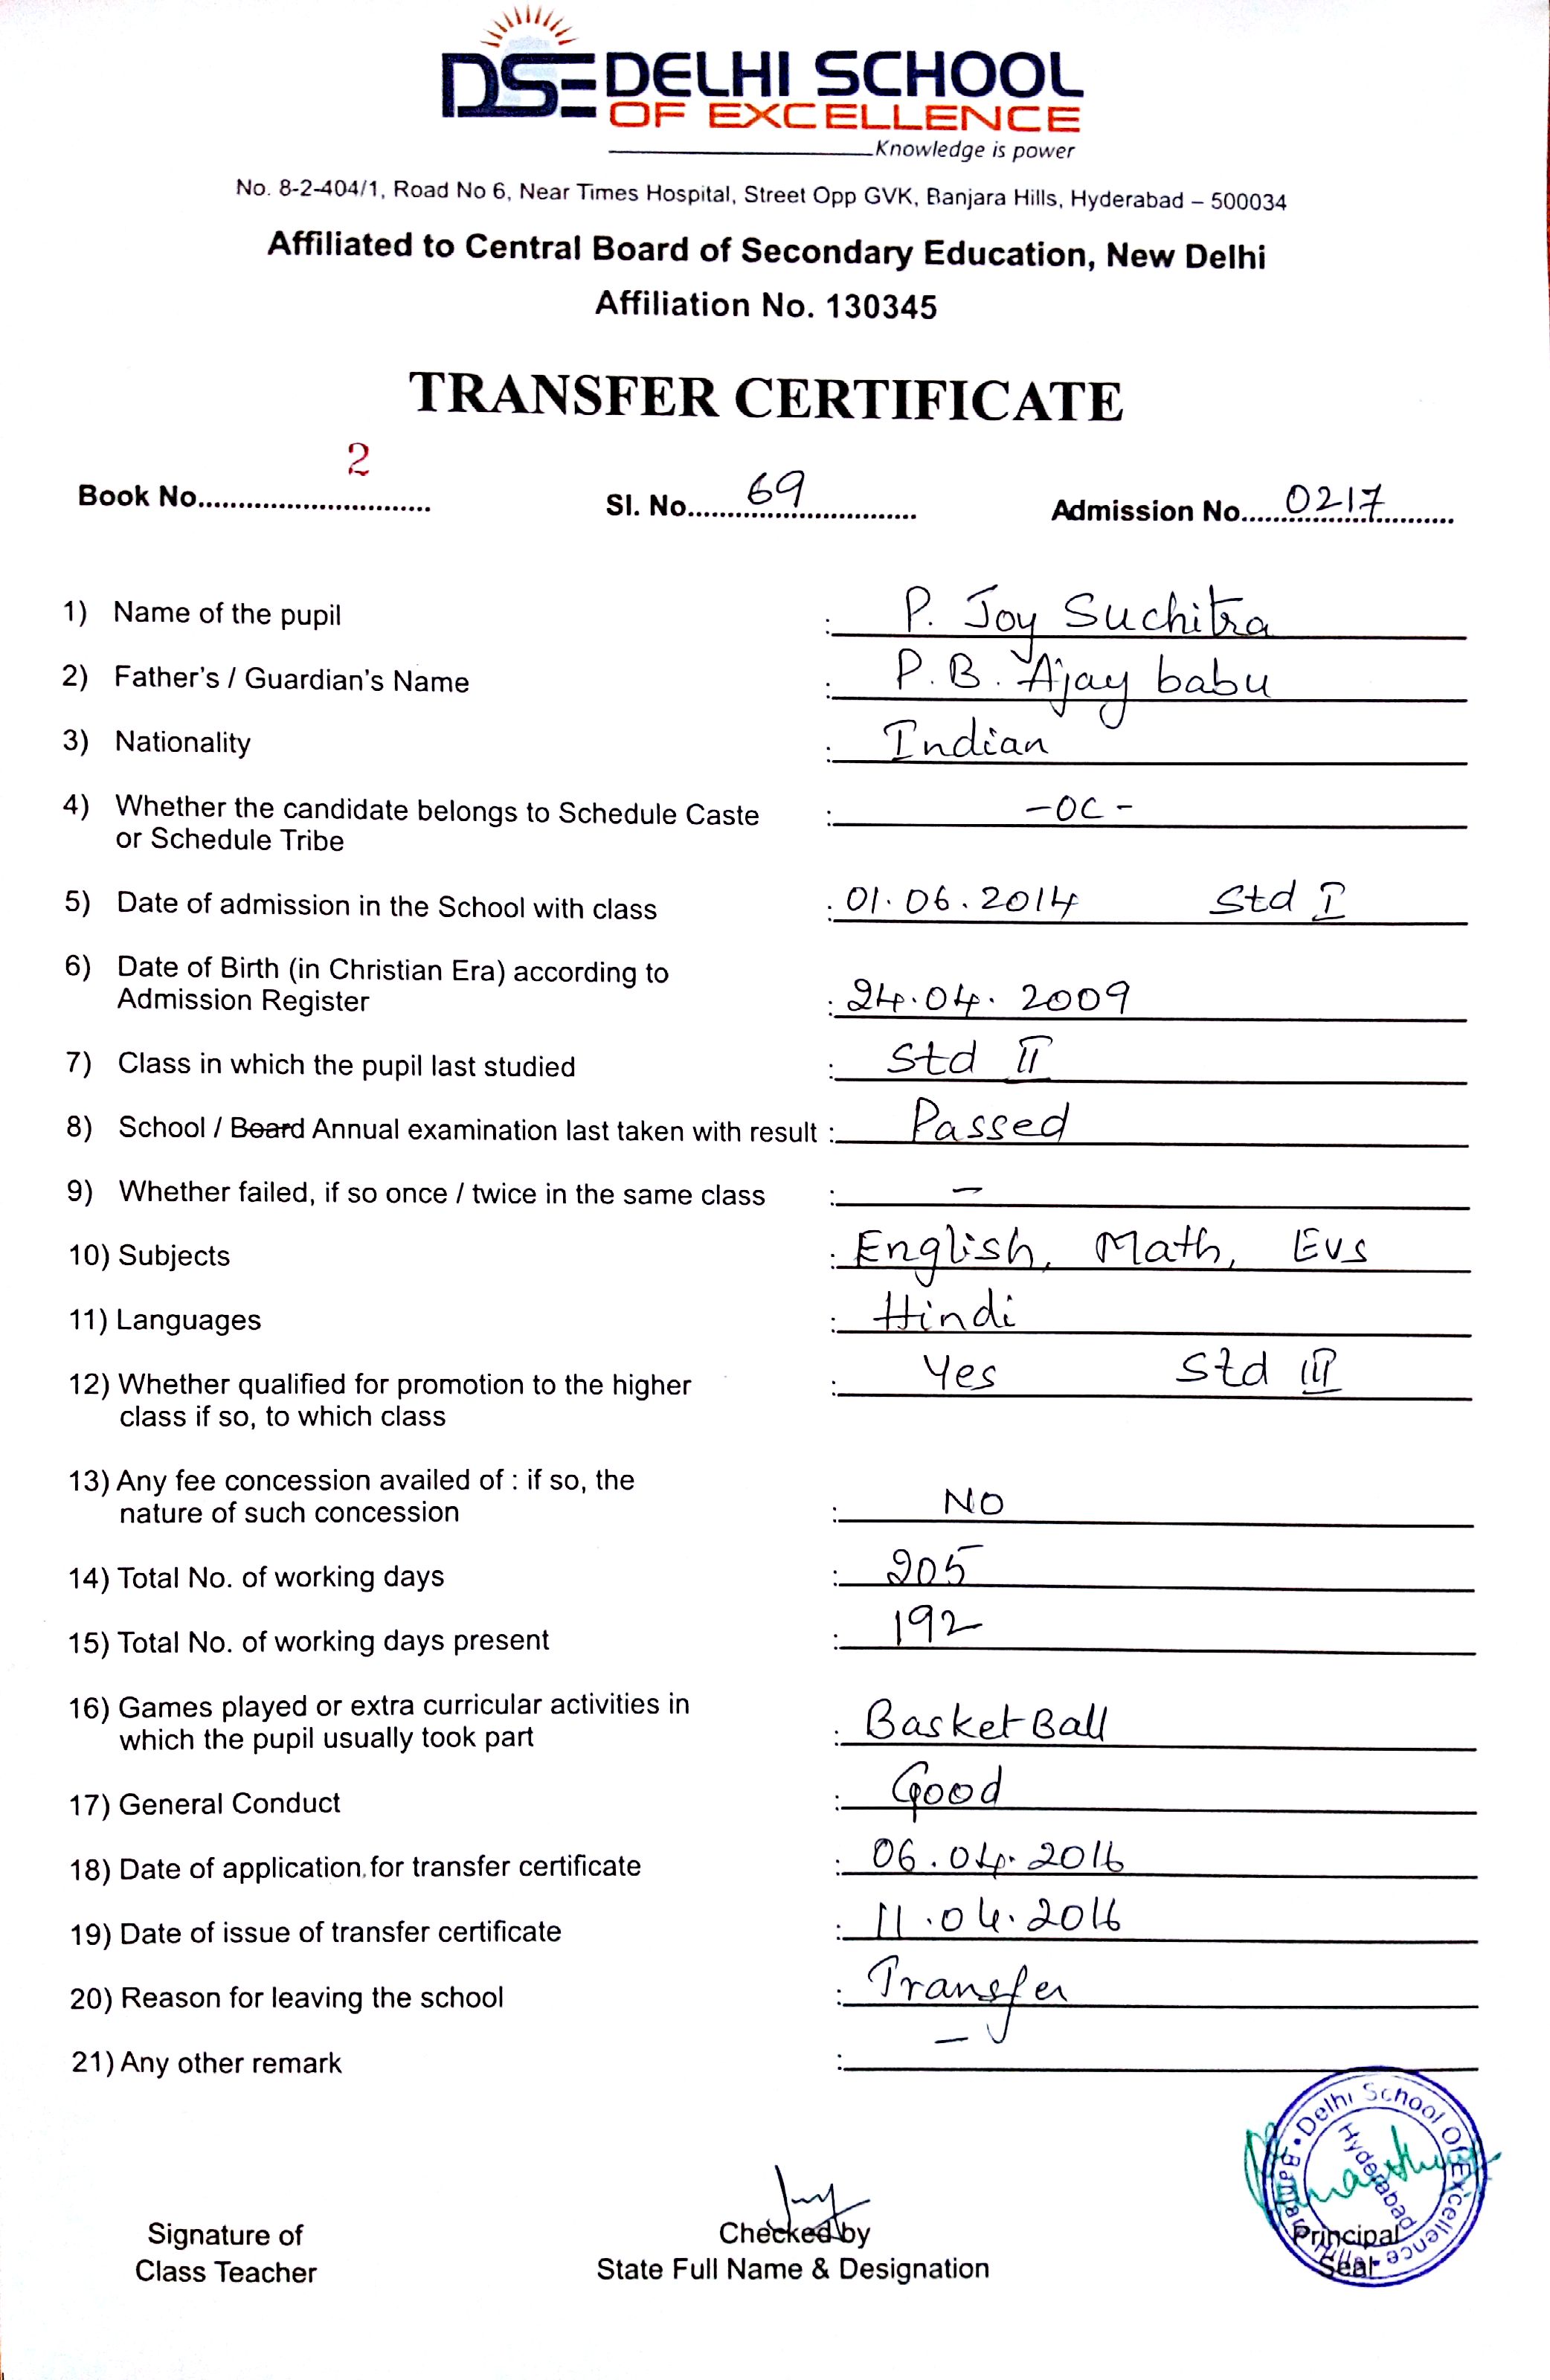 DSE DELHI SCHOOL
OF EXCELLENCE
Knowledge is power
No. 8-2-404/1, Road No 6, Near Times Hospital, Street Opp GVK, Banjara Hills, Hyderabad – 500034
Affiliated to Central Board of Secondary Education, New Delhi
Affiliation No. 130345
TRANSFER CERTIFICATE
Book No. 2 Sl. No. 69 Admission No. 0217
1) Name of the pupil : P. Joy Suchitra
2) Father's / Guardian's Name : P. B. Ajay babu
3) Nationality : Indian
4) Whether the candidate belongs to Schedule Caste : -OC-
or Schedule Tribe
5) Date of admission in the School with class : 01.06.2014 Std I
6) Date of Birth (in Christian Era) according to
Admission Register : 24.04.2009
7) Class in which the pupil last studied : Std II
8) School / Board Annual examination last taken with result : Passed
9) Whether failed, if so once / twice in the same class : -
10) Subjects : English, Math, EVS
11) Languages : Hindi
12) Whether qualified for promotion to the higher : Yes Std III
class if so, to which class
13) Any fee concession availed of : if so, the
nature of such concession : NO
14) Total No. of working days : 205
15) Total No. of working days present : 192
16) Games played or extra curricular activities in
which the pupil usually took part : Basket Ball
17) General Conduct : Good
18) Date of application for transfer certificate : 06.04.2016
19) Date of issue of transfer certificate : 11.04.2016
20) Reason for leaving the school : Transfer
21) Any other remark : -
Delhi School Of Excellence • Banjara Hills •
Hyderabad
Signature of Checked by Principal
Class Teacher State Full Name & Designation Seal